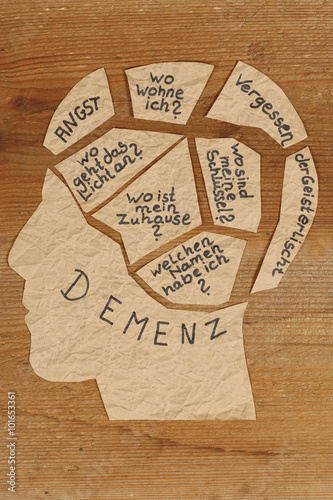 ANGST
wo
wohne
ich?
Vergessen
wo
geht das
Licht an?
wo sind
meine
Schlüssel?
der Geist erlischt
wo ist
mein
Zuhause?
welchen
Namen
habe ich
?
DEMENZ
101653361